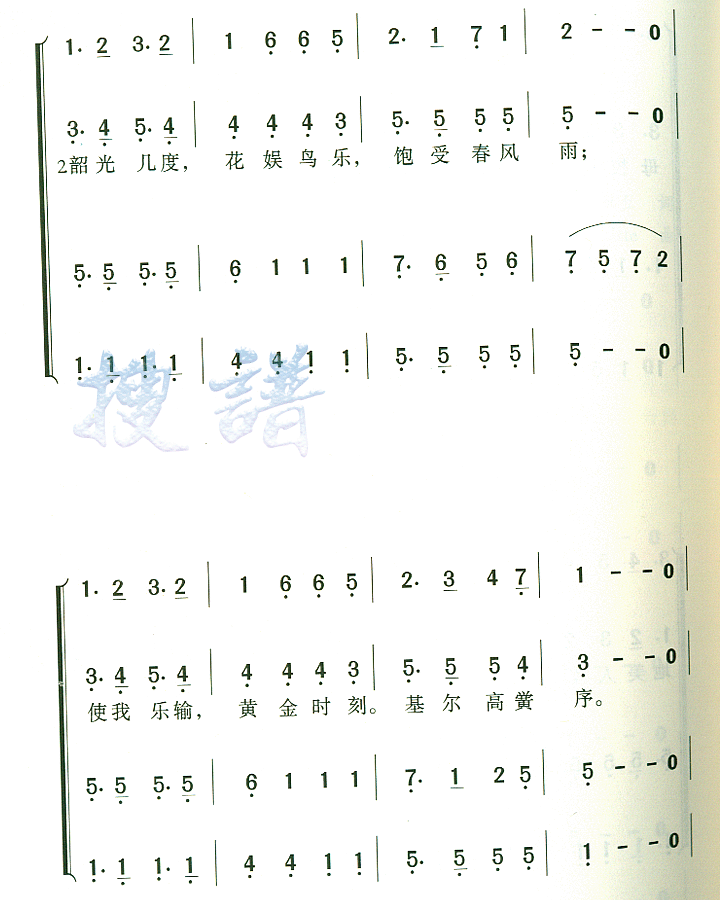 1. 2 3. 2 | 1 6 6 5 | 2. 1 7 1 | 2 - - 0 |
3. 4 5. 4 | 4 4 4 3 | 5. 5 5 5 | 5 - - 0 |
2韶光 几度, 花娱鸟乐, 饱受春风 雨;
5. 5 5. 5 | 6 1 1 1 | 7. 6 5 6 | 7 5 7 2 |
1. 1 1. 1 | 4 4 1 1 | 5. 5 5 5 | 5 - - 0 |
搜谱
1. 2 3. 2 | 1 6 6 5 | 2. 3 4 7 | 1 - - 0 |
3. 4 5. 4 | 4 4 4 3 | 5. 5 5 4 | 3 - - 0 |
使我 乐输, 黄金时刻。 基尔高黉 序。
5. 5 5. 5 | 6 1 1 1 | 7. 1 2 5 | 5 - - 0 |
1. 1 1. 1 | 4 4 1 1 | 5. 5 5 5 | 1 - - 0 |